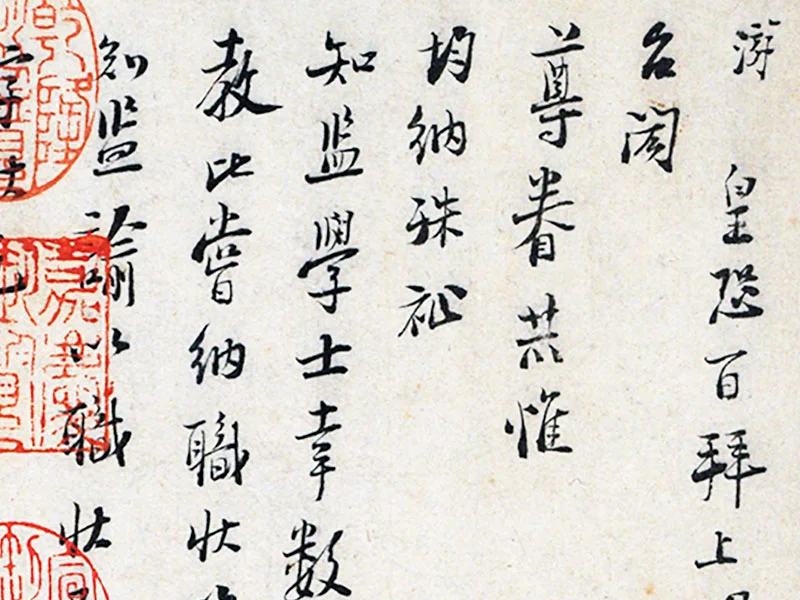 游 皇恐百拜上
台閤
尊眷恭惟
均納殊祉
知監學士幸數
教比嘗納職狀
知監諭以職狀